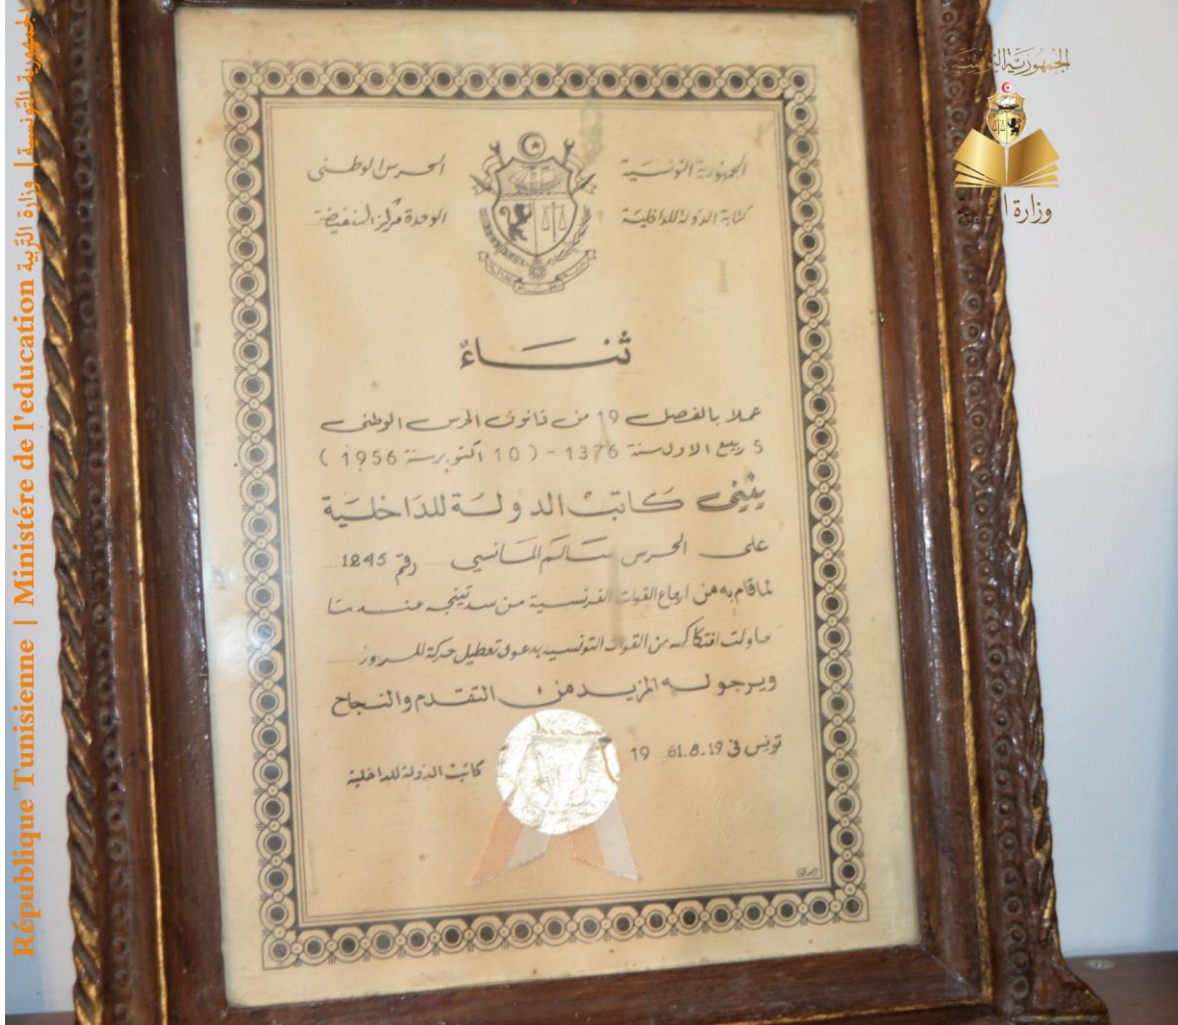 الجمهورية التونسية
وزارة التربية
République Tunisienne | Ministére de l'education الجمهورية التونسية | وزارة التربية
الجمهورية التونسية
كتابة الدولة للداخلية
الحرس الوطني
الوحدة مركز النفيضة
ثنــاءٌ
عملا بالفصل 19 من قانون الحرس الوطني
5 ربيع الاول سنة 1376 - ( 10 اكتوبر سنة 1956 )
يثني كاتب الدولة للداخلية
على الحرس سالم الماسي رقم 1245
لما قام به من ارجاع القوات الفرنسية من عندما
حاولت افتكاكه من القوات التونسية بدعوى تعطيل حركة المرور
ويرجو له المزيد من التقدم والنجاح
تونس في 19.8.61 19
كاتب الدولة للداخلية